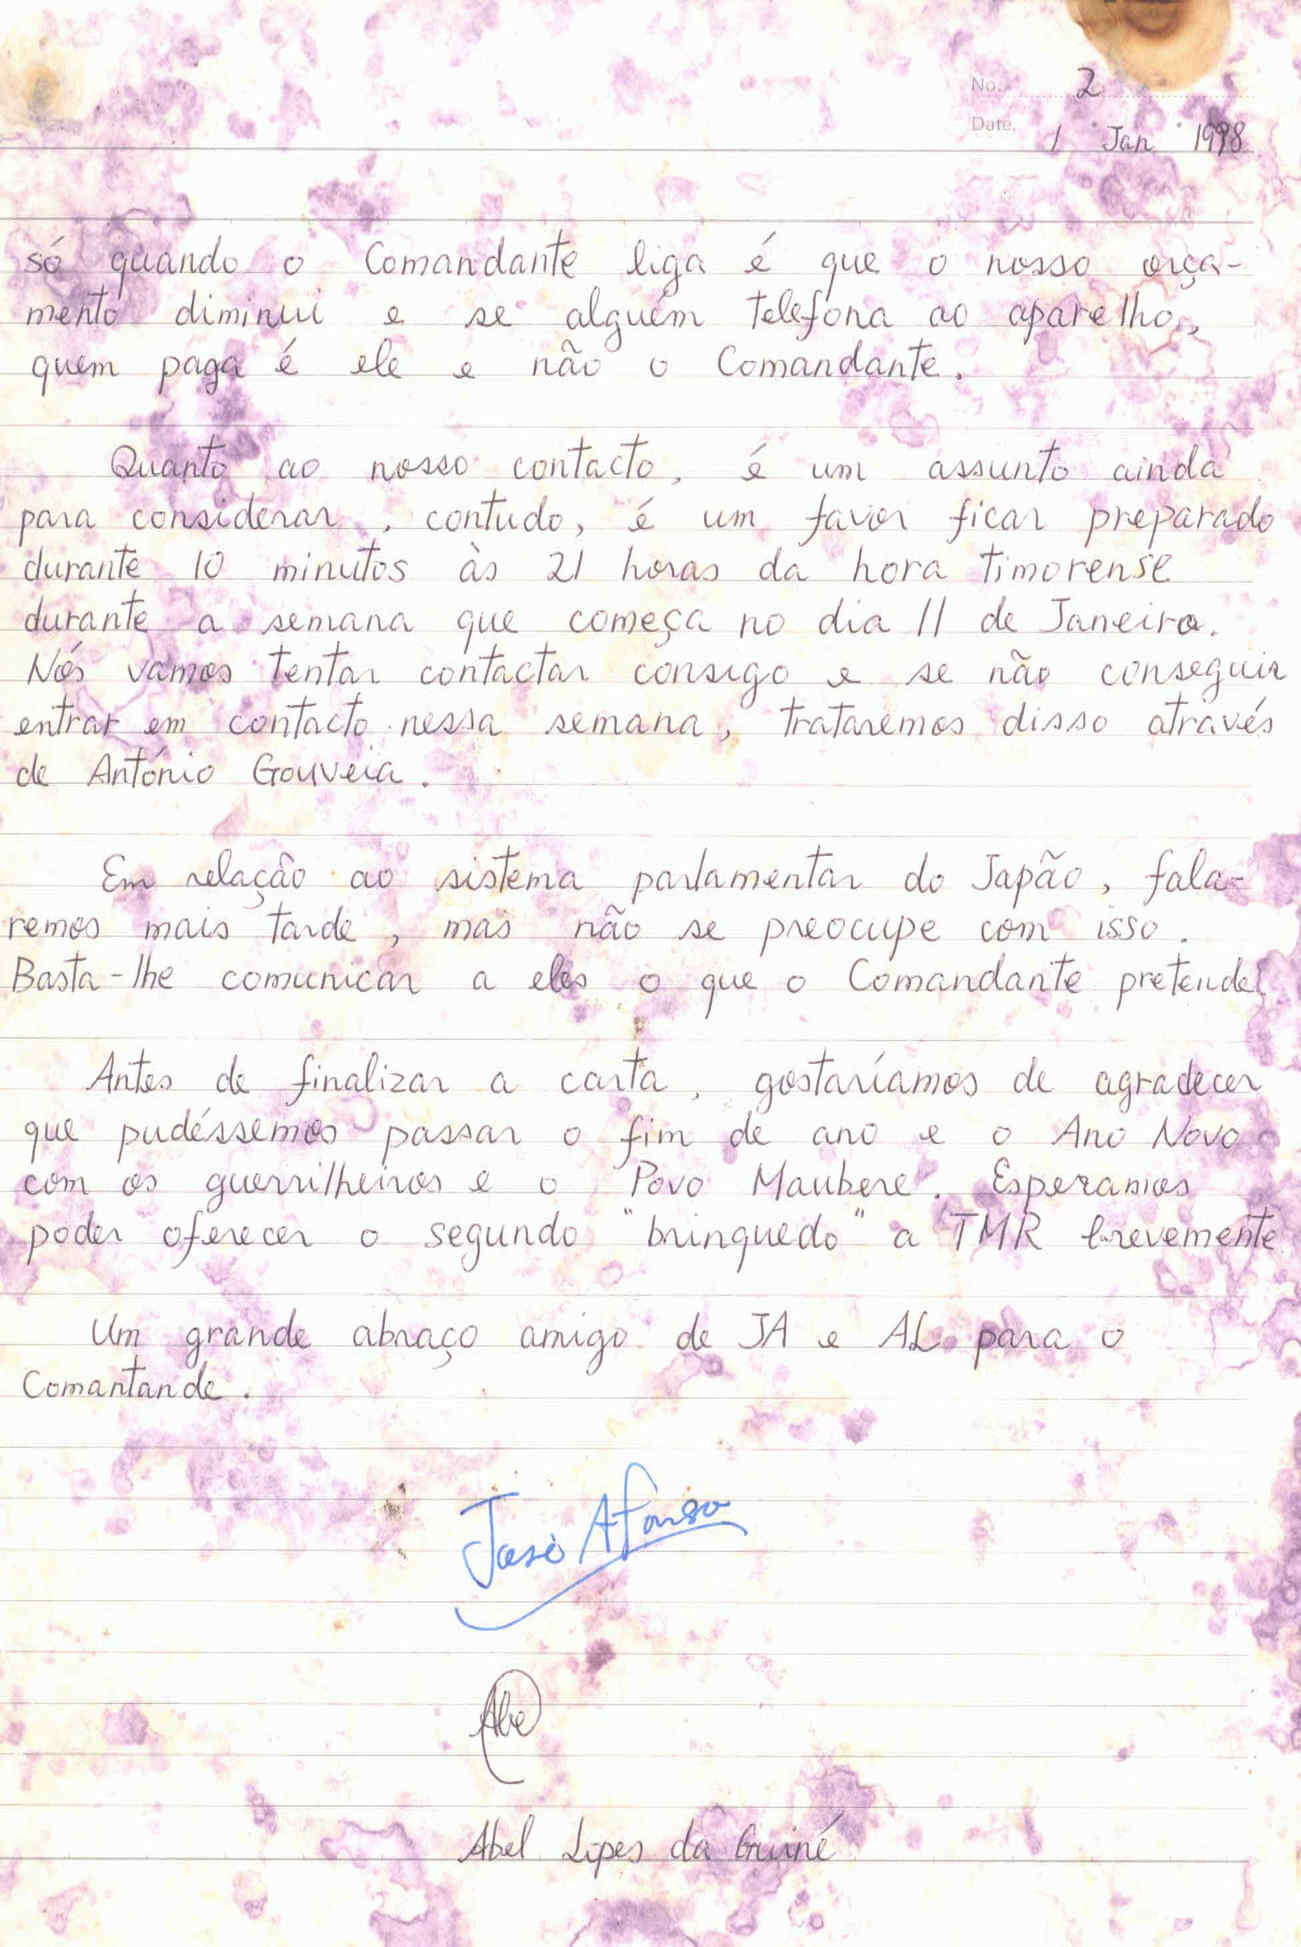 No. 2
Date. 1 Jan 1998
só quando o Comandante liga é que o nosso orça-
mento diminui e se alguém telefona ao aparelho,
quem paga é ele e não o Comandante.
Quanto ao nosso contacto, é um assunto ainda
para considerar, contudo, é um favor ficar preparado
durante 10 minutos às 21 horas da hora timorense
durante a semana que começa no dia 11 de Janeiro.
Nós vamos tentar contactar consigo e se não conseguir
entrar em contacto nessa semana, trataremos disso através
de António Gouveia.
Em relação ao sistema parlamentar do Japão, fala-
remos mais tarde, mas não se preocupe com isso.
Basta-lhe comunicar a eles o que o Comandante pretende.
Antes de finalizar a carta, gostaríamos de agradecer
que pudéssemos passar o fim de ano e o Ano Novo
com os guerrilheiros e o Povo Maubere. Esperamos
poder oferecer o segundo "brinquedo" a TMR brevemente
Um grande abraço amigo de JA e AL para o
Comantande.
José Afonso
Abe
Abel Lopes da Guiné